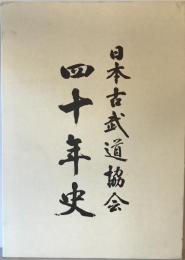 日本古武道協会
四十年史